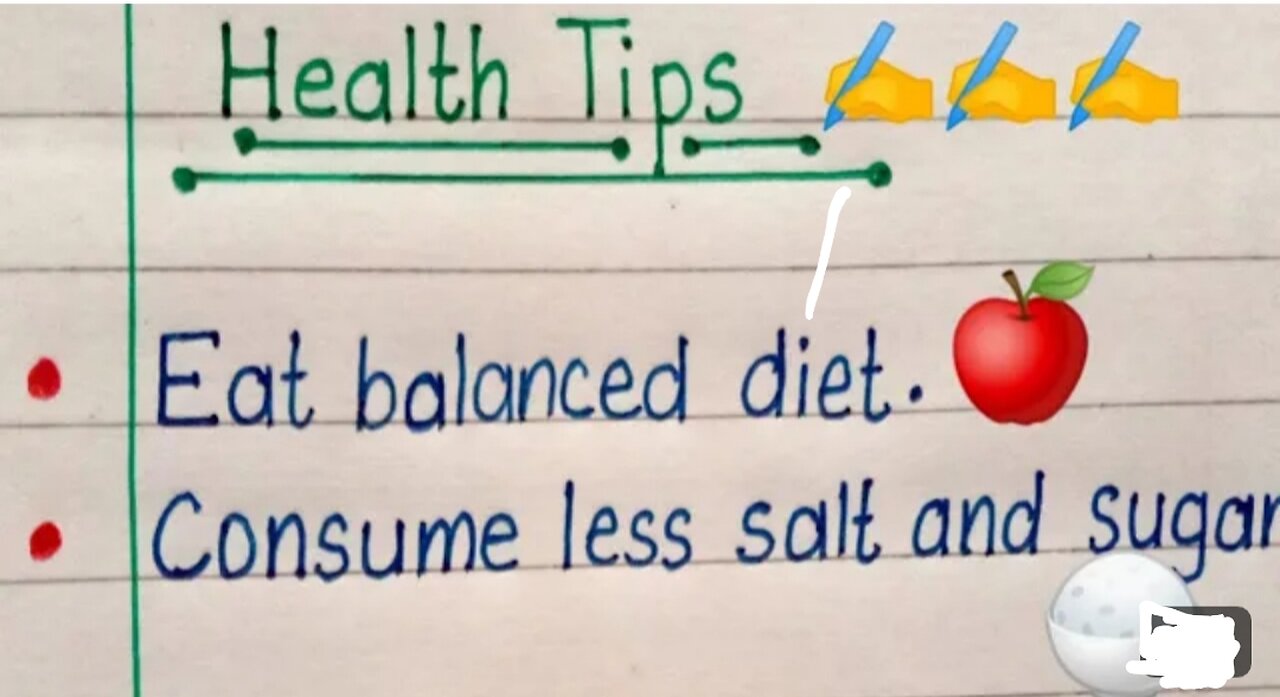 Health Tips ✍️✍️✍️
Eat balanced diet. 🍎
Consume less salt and sugar